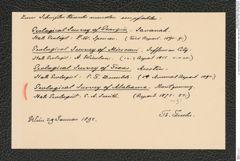 Zum Schriften Tausch wurden empfohlen:
Geological Survey of Georgia, Savannah
State Geologist: J. W. Spencer.
Geological Survey of Missouri, Jefferson City.
State Geologist: A. Winslow.
Geological Survey of Texas, Austin.
State Geologist: E. T. Dumble. (1st Annual Report 1890.)
Geological Survey of Alabama, Montgomery.
State Geologist: E. A. Smith. (Report 1875
Wien 29 Januar 1892.
Th. Fuchs.